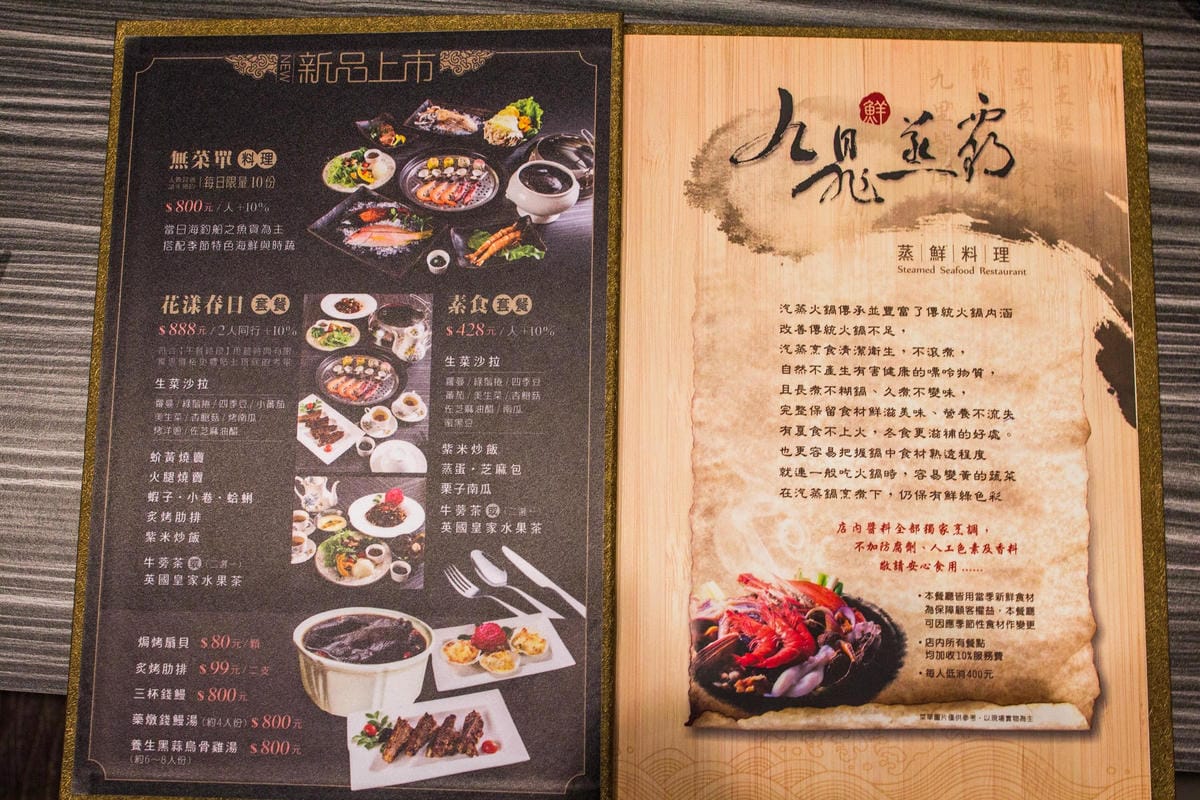 NEW 新品上市
無菜單 料理
每日限量10份
$800元/人+10%
當日海釣船之魚貨為主
搭配季節特色海鮮與時蔬
花漾春日 套餐
$888元/2人同行+10%
生菜沙拉
蘿蔓/綠鬚捲/四季豆/小蕃茄
美生菜/杏鮑菇/烤南瓜
烤洋蔥/佐芝麻油醋
蚧黃燒賣
火腿燒賣
蝦子・小卷・蛤蜊
炙烤肋排
紫米炒飯
牛蒡茶 或 (二選一)
英國皇家水果茶
素食 套餐
$428元/人+10%
生菜沙拉
蘿蔓/綠鬚捲/四季豆
蕃茄/美生菜/杏鮑菇
佐芝麻油醋/南瓜
蜜黑豆
紫米炒飯
蒸蛋・芝麻包
栗子南瓜
牛蒡茶 或 (二選一)
英國皇家水果茶
焗烤扇貝 $80元/顆
炙烤肋排 $99元/二支
三杯錢鰻 $800元
藥燉錢鰻湯(約4人份) $800元
養生黑蒜烏骨雞湯 $800元
(約6~8人份)
九鼎蒸霸
鮮
蒸|鮮|料|理
Steamed Seafood Restaurant
汽蒸火鍋傳承並豐富了傳統火鍋內涵
改善傳統火鍋不足，
汽蒸烹食清潔衛生，不滾煮，
自然不產生有害健康的嘌呤物質，
且長煮不糊鍋、久煮不變味，
完整保留食材鮮滋美味、營養不流失
有夏食不上火，冬食更滋補的好處。
也更容易把握鍋中食材熟透程度
就連一般吃火鍋時，容易變黃的蔬菜
在汽蒸鍋烹煮下，仍保有鮮綠色彩
店內醬料全部獨家烹調，
不加防腐劑、人工色素及香料
敬請安心食用......
・本餐廳皆用當季新鮮食材
為保障顧客權益，本餐廳
可因應季節性食材作變更
・店內所有餐點
均加收10%服務費
・每人低消400元
菜單圖片僅供參考，以現場實物為主